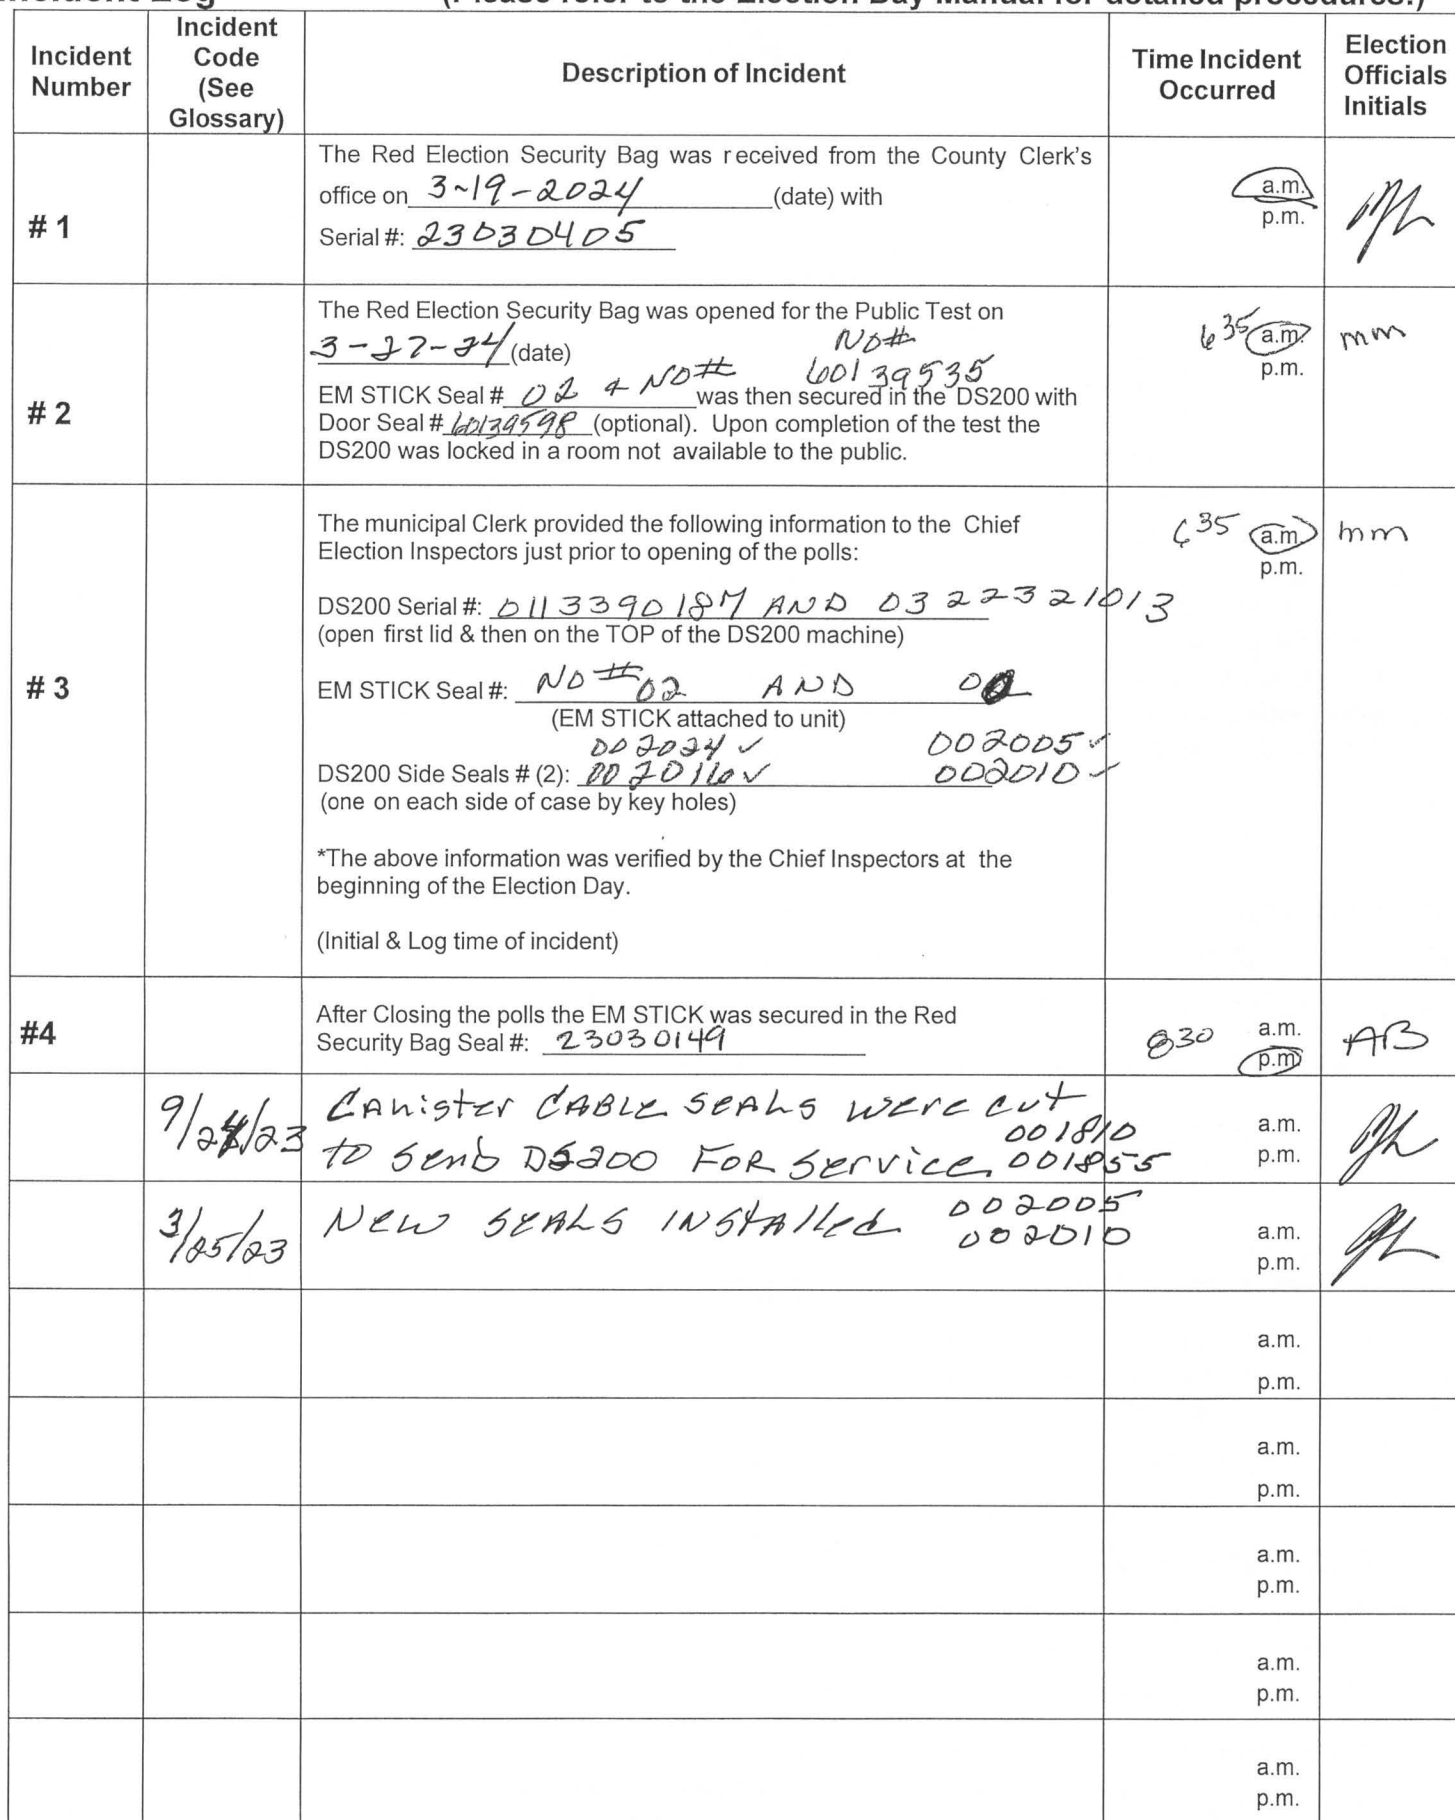 (Please refer to the Election Day Manual for detailed procedures.)
Incident Number
Incident Code (See Glossary)
Description of Incident
Time Incident Occurred
Election Officials Initials
# 1
The Red Election Security Bag was received from the County Clerk's
office on 3-19-2024 (date) with
Serial #: 23030405
a.m.
p.m.
# 2
The Red Election Security Bag was opened for the Public Test on
3-27-24 (date)
NO#
60139535
EM STICK Seal # 02 & NO# was then secured in the DS200 with
Door Seal # 60139598 (optional). Upon completion of the test the
DS200 was locked in a room not available to the public.
635 a.m.
p.m.
mm
# 3
The municipal Clerk provided the following information to the Chief
Election Inspectors just prior to opening of the polls:
DS200 Serial #: 0113390187 AND 0322321013
(open first lid & then on the TOP of the DS200 machine)
EM STICK Seal #: NO # 02 AND
(EM STICK attached to unit)
002024 ✓ 002005 ✓
DS200 Side Seals # (2): 002016 ✓ 002010 ✓
(one on each side of case by key holes)
*The above information was verified by the Chief Inspectors at the
beginning of the Election Day.
(Initial & Log time of incident)
635 a.m.
p.m.
mm
#4
After Closing the polls the EM STICK was secured in the Red
Security Bag Seal #: 23030149
830 a.m.
p.m.
AB
CANister CABLE SEALS were cut
001810
to send DS200 FOR Service 001855
a.m.
p.m.
3/25/23
New SEALS INSTAlled 002005
002010
a.m.
p.m.
a.m.
p.m.
a.m.
p.m.
a.m.
p.m.
a.m.
p.m.
a.m.
p.m.